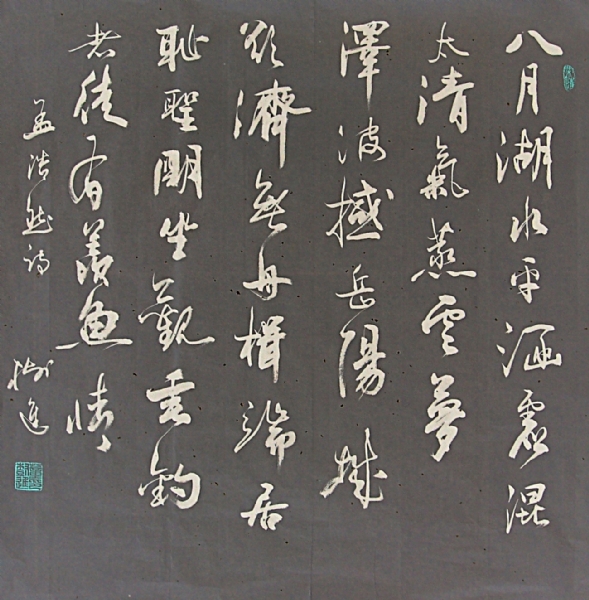 八月湖水平涵虛混
太清氣蒸雲夢
澤波撼岳陽城
欲濟無舟楫端居
耻聖明坐觀垂釣
者徒有羨魚情
孟浩然詩 樹進